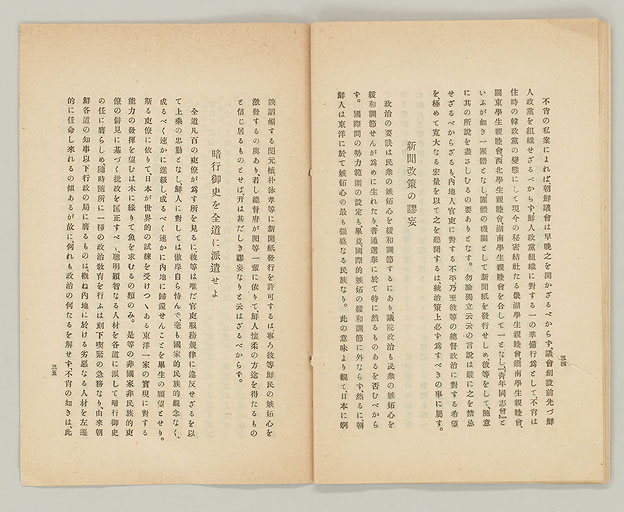 不肖の私案によれば朝鮮議會は早晩之を開かざるべからず、議會創設前先づ鮮
人政黨を組織せざるべからず鮮人政黨組織に對する一の準備行爲として不肖は
住時の韓政黨の變態にして現今の秘密結社たる畿湖學生親睦會、嶺南學生親睦會、
關東學生親睦會、西北學生親睦會、湖南學生親睦會を合して一となし『靑年同志會』と
いふが如き一團體となし、團體の機關として新聞紙を發行せしめ彼等をして隨意
に其の所說を盡さしむるの要ありとなす。勿論獨立云云の言說は嚴に之を禁忌
せざるべからざるも、內地人官吏に對する不平乃至彼等の總督政治に對する希望
を極めて寬大なる宏量を以て之を聽聞するは統治策上必ず爲すべきの事に屬す。
新聞政策の謬妄
政治の要諦は民衆の嫉妬心を緩和調節するにあり議院政治も民衆の嫉妬心を
緩和調節せんが爲めに生れたり普通選擧に於て特に然るものあるを否むべから
ず。國際間の勢力範圍の設定も畢竟國際的嫉妬の緩和調節に外ならず、然るに、朝
鮮人は東洋に於て嫉妬心の最も强盛なる民族なり。此の意味より觀て、日本に
三四
閔元植朴泳孝等に新聞紙發行を許可するは寧ろ彼等鮮民の嫉妬心を
激發するの虞あり、若し總督府が閔等一輩に依りて鮮人懷柔の方途を得たるもの
と信じ居るものとせば、开は甚だしき謬妄なりと云はざるべからず。
暗行御史を全道に派遣せよ
全道凡百の吏僚が爲す所を見るに彼等は唯だ官吏服務規律に違反せざるを以
て上乘の忠勤となし、鮮人に對しては倨岸自ら恃んで、毫も國家的民族的觀念なく、
成るべく速かに進級し成るべく速かに內地に歸還せんことを畢生の願望とせり。
斯る吏僚に依りて日本が世界的の試練を受けつゝある東洋一家の實現に對する
能力の發揮を望むは木に緣りて魚を求むるの類のみ。是等の非國家非民族的吏
僚の僻見に基づく批政を匡正すべく、聰明穎智なる人材を各道に派して暗行御史
の任に膺らしめ、隨時隨所に一種の政治敎育を行ふは刻下喫緊の急務なり、由來朝
鮮各道の知事以下行政の局に膺るものは、槪ね內地に於ける劣惡なる人材を左遷
的に任命し來れるの傾あるが故に何れも政治の何たるを解せず、不肖の如きは、此
三五